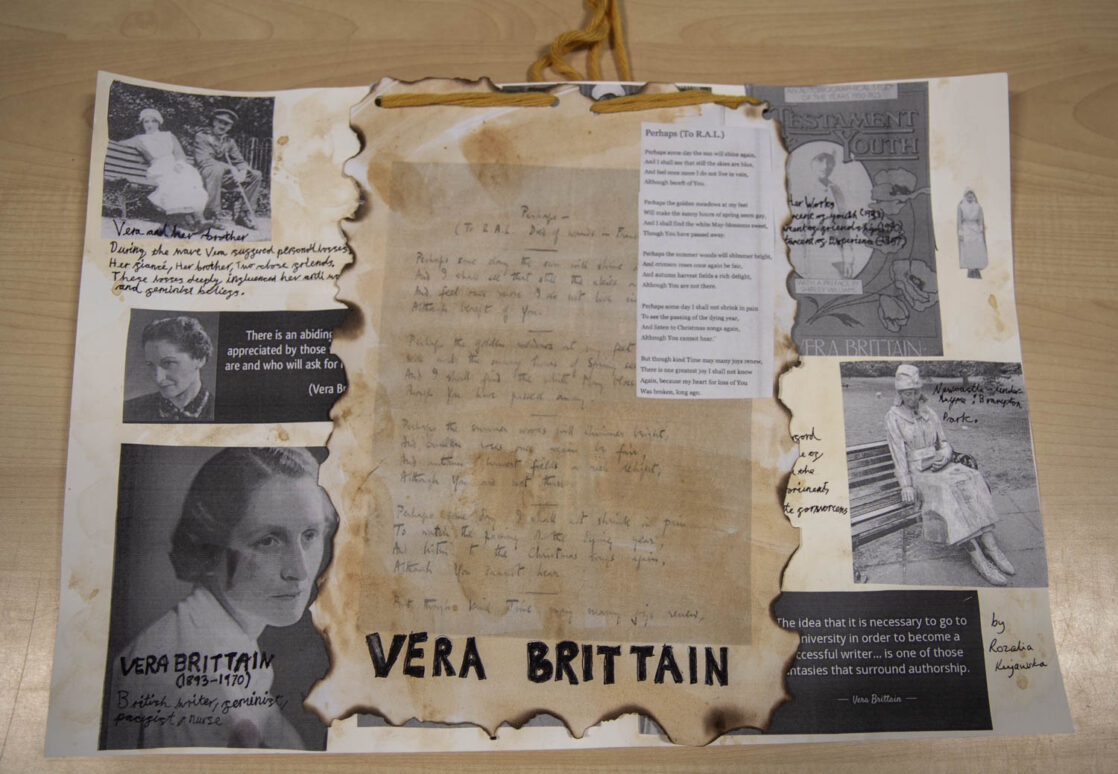 Vera and her brother
During the wave Vera suggered personal losses
Her giancé, Her brother, Two close griends,
These losses deeply ingluenced her anti w
and geminist beliegs.
There is an abiding
appreciated by those
are and who will ask for
(Vera Br
VERA BRITTAIN
(1893-1970)
British writer, geminist,
pacigist, nurse
Perhaps -
(To R.A.L. Died of wounds in
Perhaps some day the sun will shine
And I shall see that still the skies are
And feel once more I do not live in
Although bereft of You.
Perhaps the golden meadows at my feet
Will make the sunny hours of Spring seem
And I shall find the white May blossoms
Though You have passed away.
Perhaps the summer woods will shimmer bright,
And crimson roses once again be fair,
And autumn harvest fields a rich delight,
Although You are not there.
Perhaps some day I shall not shrink in pain
To see the passing of the dying year,
And listen to the Christmas songs again,
Although You cannot hear.
But though kind Time may many joys renew,
Perhaps (To R.A.L.)
Perhaps some day the sun will shine again,
And I shall see that still the skies are blue,
And feel once more I do not live in vain,
Although bereft of You.
Perhaps the golden meadows at my feet
Will make the sunny hours of spring seem gay,
And I shall find the white May-blossoms sweet,
Though You have passed away.
Perhaps the summer woods will shimmer bright,
And crimson roses once again be fair,
And autumn harvest fields a rich delight,
Although You are not there.
Perhaps some day I shall not shrink in pain
To see the passing of the dying year,
And listen to Christmas songs again,
Although You cannot hear.'
But though kind Time may many joys renew,
There is one greatest joy I shall not know
Again, because my heart for loss of You
Was broken, long ago.
VERA BRITTAIN
AN AUTOBIOGRAPHICAL STUDY
OF THE YEARS 1900-1925
TESTAMENT
YOUTH
Her Works
WITH A PREFACE BY
SHIRLEY WILLIAMS
VERA BRITTAIN
Newcastle-Under-
Lyme; Brampton
Park.
the
The idea that it is necessary to go to
university in order to become a
ccessful writer... is one of those
ntasies that surround authorship.
— Vera Brittain —
by
Rozalia
Kujawska